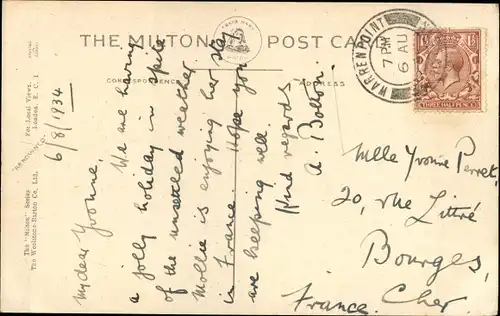 THE MILTON POST CARD
TRADE MARK
CORRESPONDENCE
ADDRESS
WARRENPOINT
7 PM
6 AU
THREE HALFPENCE
6/8/1934
My dear Yvonne,
We are having
a jolly holiday in spite
of the unsettled weather
Mollie is enjoying her stay
in France. Hope you
are keeping well.
Kind regards
A. Bolton.
Mlle Yvonne Perret
20, rue Littré
Bourges,
Cher.
France.
For Local Views.
London, E.C.1
The "Milton" Series
The Woolstone-Barton Co. Ltd.